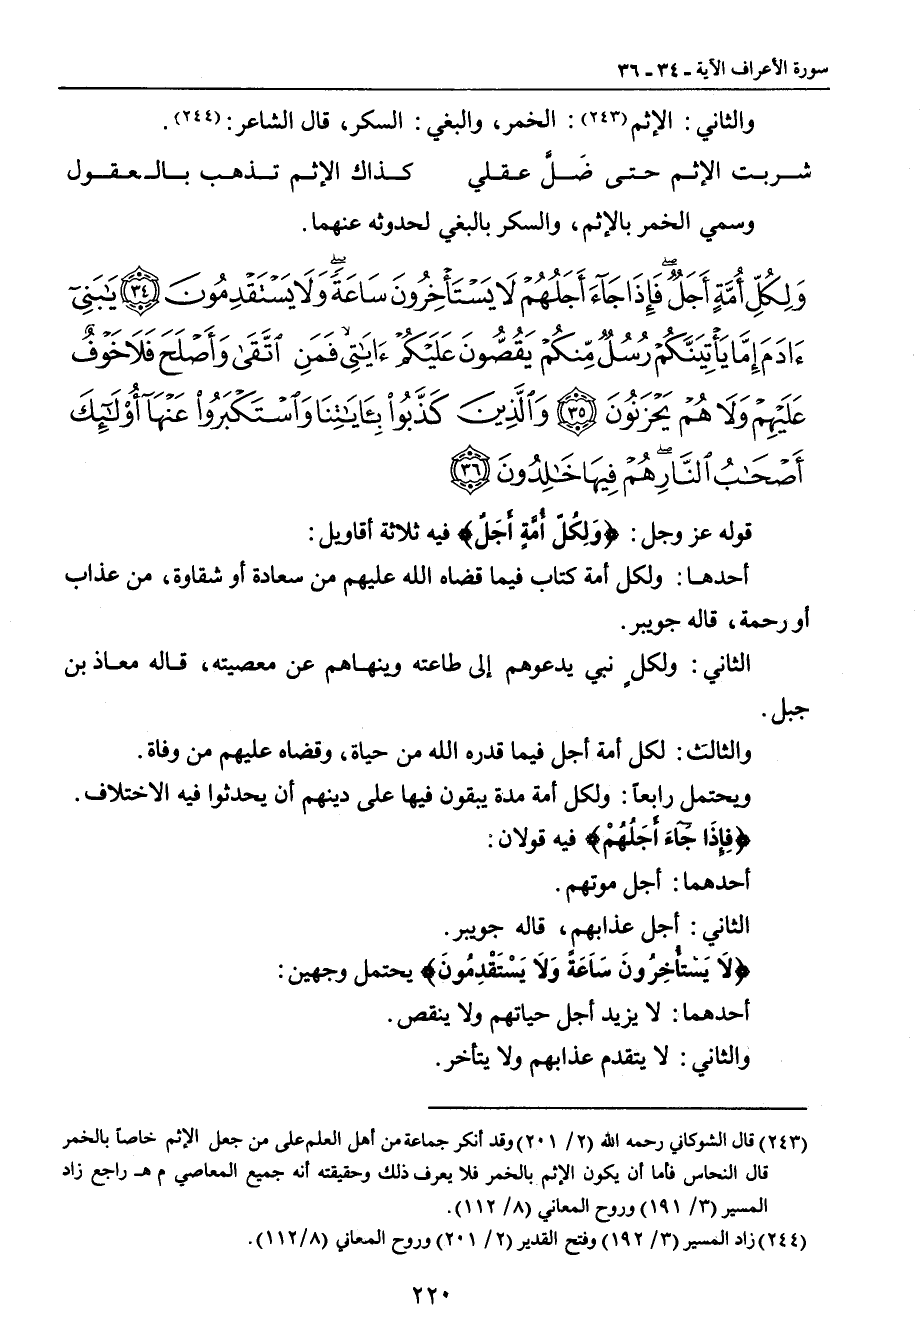 سورة الأعراف الآية ـ ٣٤ ـ ٣٦
والثاني: الإثم(٢٤٣): الخمر، والبغي: السكر، قال الشاعر:(٢٤٤).
شربت الإثم حتى ضَلَّ عقلي كذاك الإثم تذهب بالعقول
وسمي الخمر بالإثم، والسكر بالبغي لحدوثه عنهما.
وَلِكُلِّ أُمَّةٍ أَجَلٌۖ فَإِذَا جَآءَ أَجَلُهُمْ لَا يَسْتَأْخِرُونَ سَاعَةًۖ وَلَا يَسْتَقْدِمُونَ ٣٤ يَٰبَنِيٓ
ءَادَمَ إِمَّا يَأْتِيَنَّكُمْ رُسُلٌ مِّنكُمْ يَقُصُّونَ عَلَيْكُمْ ءَايَٰتِيۙ فَمَنِ ٱتَّقَىٰ وَأَصْلَحَ فَلَا خَوْفٌ
عَلَيْهِمْ وَلَا هُمْ يَحْزَنُونَ ٣٥ وَٱلَّذِينَ كَذَّبُوا۟ بِـَٔايَٰتِنَا وَٱسْتَكْبَرُوا۟ عَنْهَآ أُو۟لَٰٓئِكَ
أَصْحَٰبُ ٱلنَّارِۖ هُمْ فِيهَا خَٰلِدُونَ ٣٦
قوله عز وجل: ﴿وَلِكُلِّ أُمَّةٍ أَجَلٌ﴾ فيه ثلاثة أقاويل:
أحدها: ولكل أمة كتاب فيما قضاه الله عليهم من سعادة أو شقاوة، من عذاب
أو رحمة، قاله جويبر.
الثاني: ولكلٍ نبي يدعوهم إلى طاعته وينهاهم عن معصيته، قاله معاذ بن
جبل.
والثالث: لكل أمة أجل فيما قدره الله من حياة، وقضاه عليهم من وفاة.
ويحتمل رابعاً: ولكل أمة مدة يبقون فيها على دينهم أن يحدثوا فيه الاختلاف.
﴿فِإِذَا جَآءَ أَجَلُهُمْ﴾ فيه قولان:
أحدهما: أجل موتهم.
الثاني: أجل عذابهم، قاله جويبر.
﴿لَا يَسْتَأْخِرُونَ سَاعَةً وَلَا يَسْتَقْدِمُونَ﴾ يحتمل وجهين:
أحدهما: لا يزيد أجل حياتهم ولا ينقص.
والثاني: لا يتقدم عذابهم ولا يتأخر.
(٢٤٣) قال الشوكاني رحمه الله (٢/ ٢٠١) وقد أنكر جماعة من أهل العلم على من جعل الإثم خاصاً بالخمر
قال النحاس فأما أن يكون الإثم بالخمر فلا يعرف ذلك وحقيقته أنه جميع المعاصي م هـ راجع زاد
المسير (٣/ ١٩١) وروح المعاني (٨/ ١١٢).
(٢٤٤) زاد المسير (٣/ ١٩٢) وفتح القدير (٢/ ٢٠١) وروح المعاني (١١٢/٨).
٢٢٠